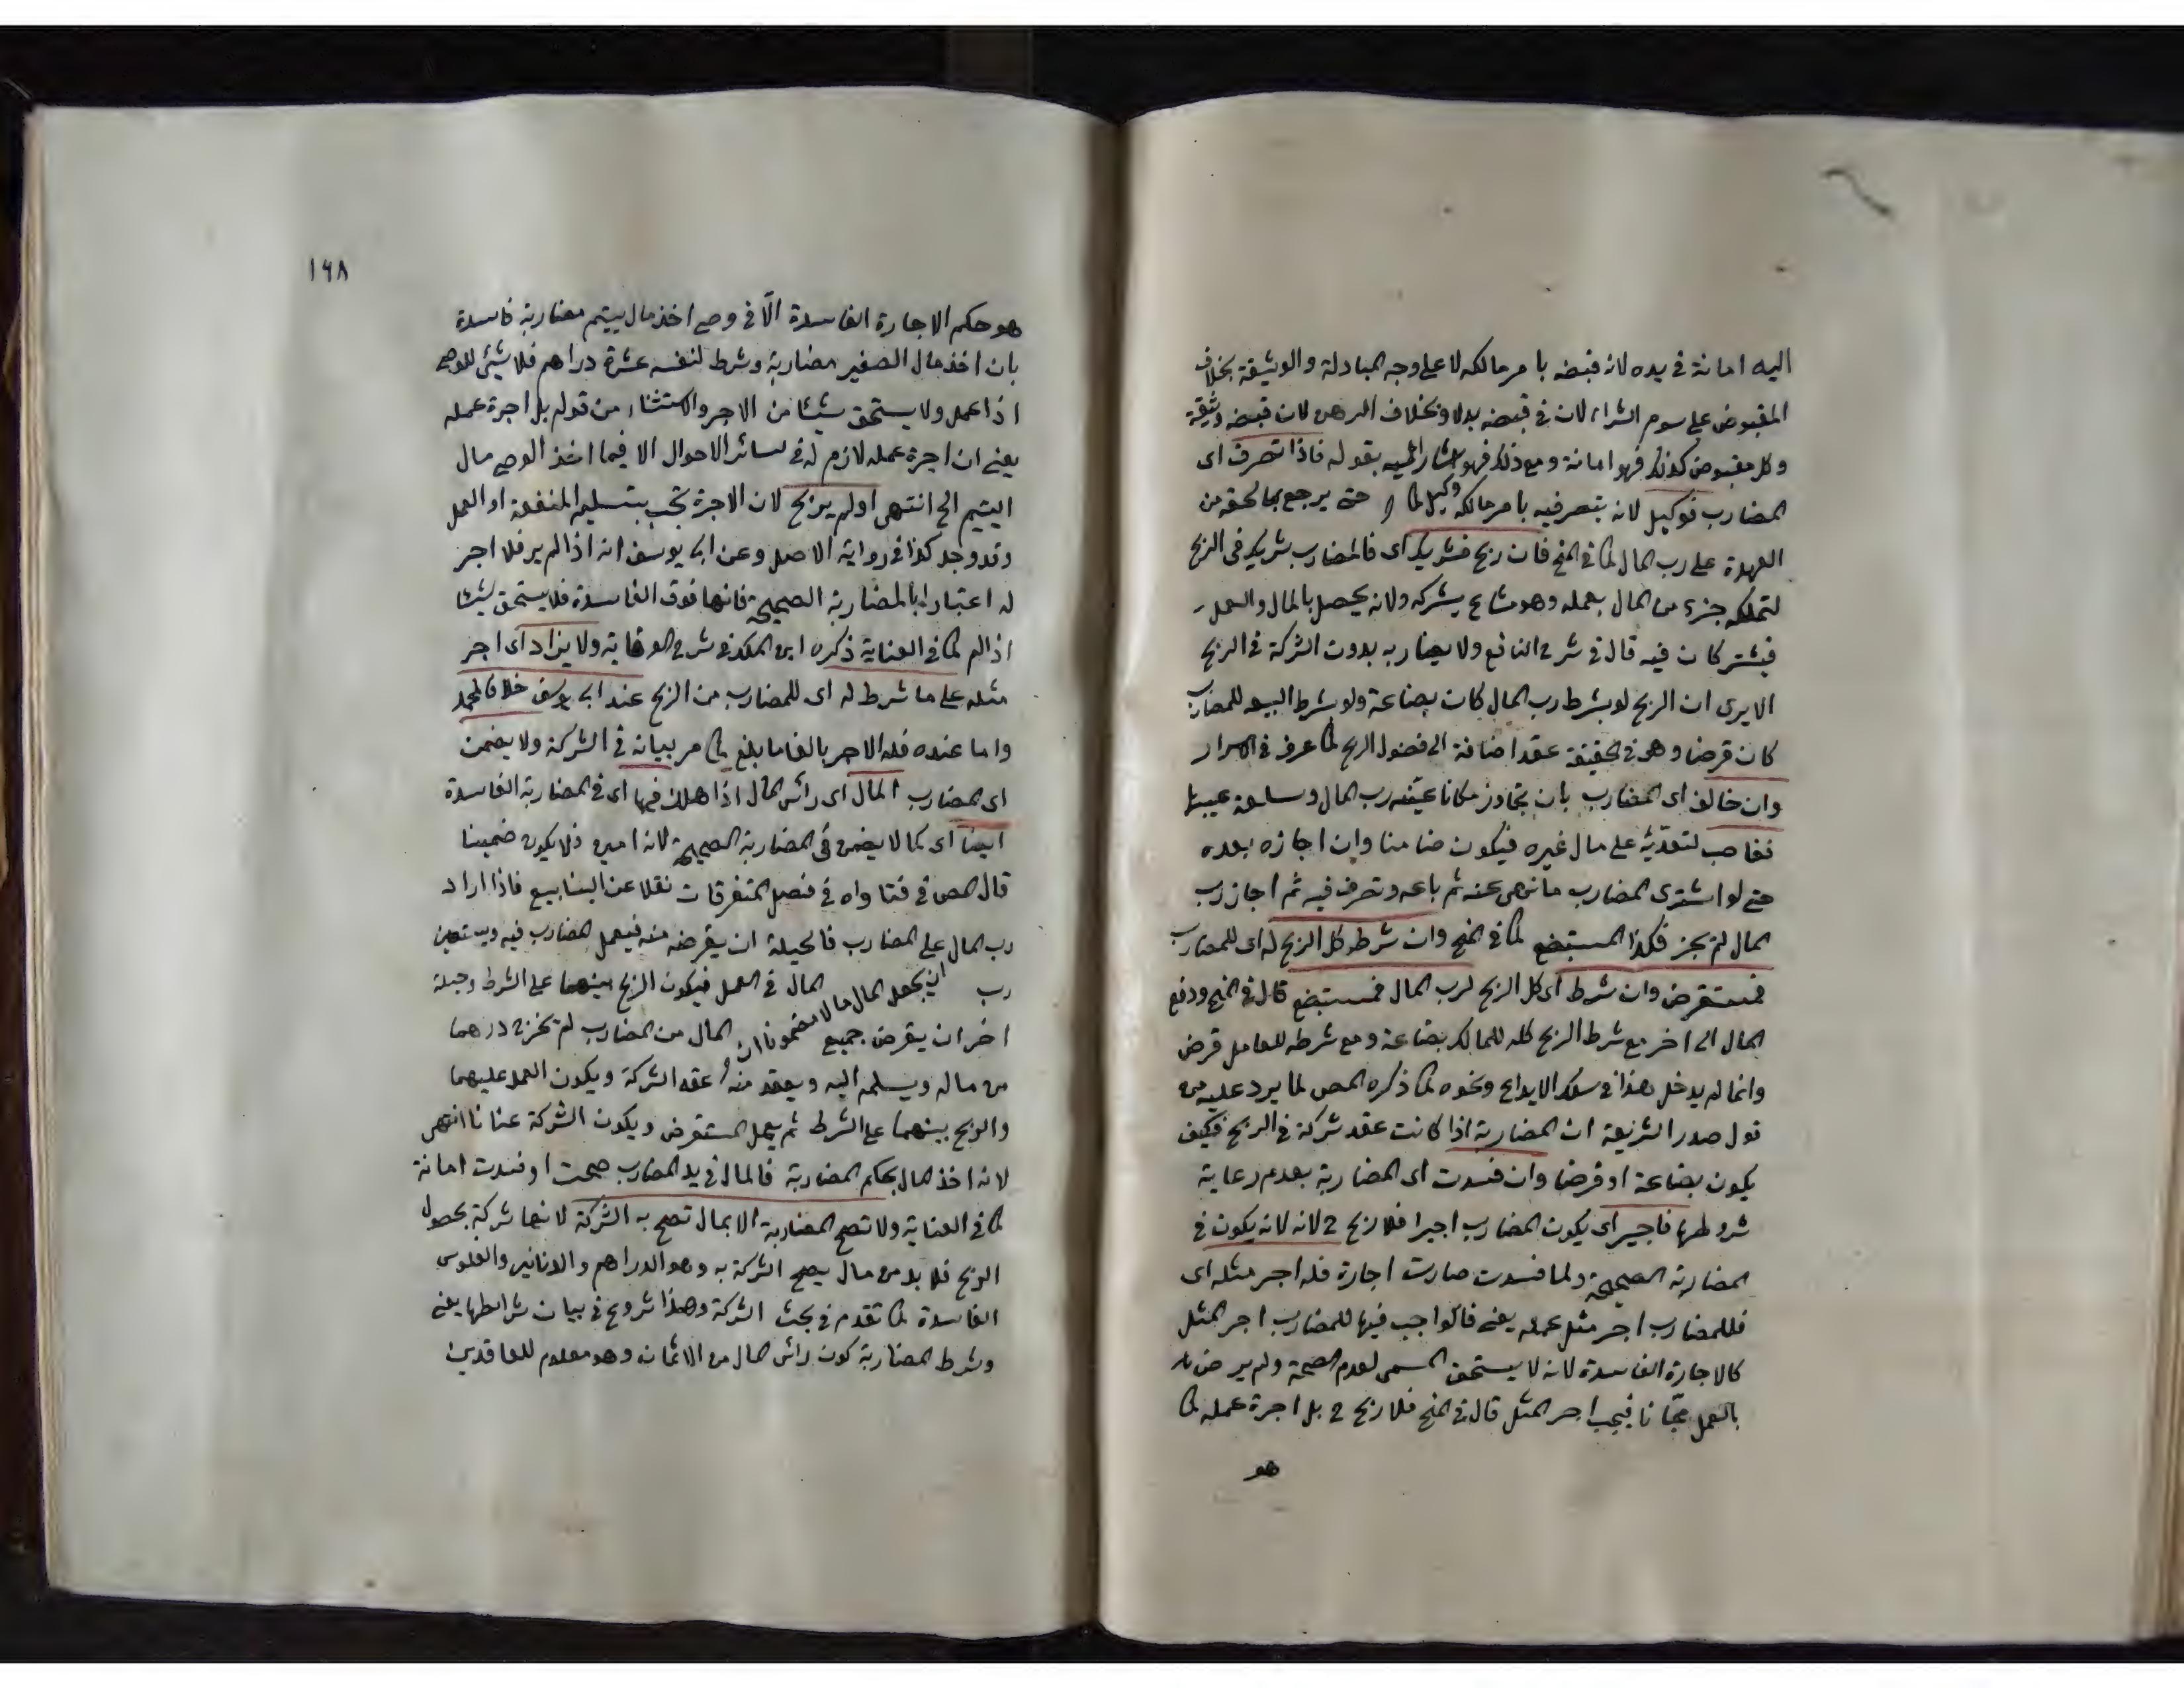 اليه امانة فى يده لانه قبضه با مر مالكه لا على وجه المبادلة والوثيقة بخلاف
المقبوض على سوم الشراء لان فى قبضه بدلا وبخلاف الرهن لان قبضه وثيقة
وكل مقبوض كذلك فهو امانة ومع ذلك فهو اشار اليه بقوله فاذا تصرف اى
المضارب فوكيل لانه يتصرفيه با مر مالكه وكيل حتى يرجع بما لحقه من
العهدة على رب المال كما فى المنح فان ربح فشريك اى فالمضارب شريك فى الربح
لتملكه جزء من المال بعمله وهو مشاع يشركه ولانه يحصل بالمال والعمل
فيشتركان فيه قال فى شرح النافع ولا يضاربه بدون الشركة فى الربح
الا يرى ان الربح لو شرط رب المال كان بضاعة ولو شرط البيع للمضارب
كان قرضا وهى فى الحقيقة عقد اضافة الى فضول الربح كما عرف فى الاسرار
وان خالف اى المضارب بان يتجاوز مكانا عينه رب المال وسلعة عينها
فغاصب لتعديه على مال غيره فيكون ضامنا وان اجازه بعده
حتى لو اشترى المضارب ما نهى عنه ثم باعه وتصرف فيه ثم اجاز رب
المال لم يجز فكذا المستبضع كما فى المنح وان شرط كل الربح له اى للمضارب
فمستقرض وان شرط اى كل الربح لرب المال فمستبضع قال فى المنح ودفع
المال الى اخر مع شرط الربح كله للمالك بضاعة ومع شرطه للعامل قرض
وانما لم يدخل هذا فى سلك الايداع ونحوه كما ذكره المص لما يرد عليه من
قول صدر الشريعة ان المضاربة اذا كانت عقد شركة فى الربح فكيف
يكون بضاعة او قرضا وان فسدت اى المضاربة بعدم رعاية
شروطها فاجير اى يكون المضارب اجيرا فلا ربح ح لانه لانه يكون فى
المضاربة الصحيحة ولما فسدت صارت اجارة فله اجر مثله اى
فللمضارب اجر مثل عمله يعنى فالواجب فيها للمضارب اجر المثل
كالاجارة الفاسدة لانه لا يستحق المسمى لعدم الصحة ولم يرض
بالعمل مجانا فيجب اجر المثل قال فى المنح فلا ربح ح بل اجرة عمله كما
هو
١٦٨
هو حكم الاجارة الفاسدة الّا فى وصى اخذ مال يتيم مضاربة فاسدة
بان اخذ مال الصغير مضاربة وشرط لنفسه عشرة دراهم فلا شئ للوصى
اذا عمل ولا يستحق شيئا من الاجر والاستثناء من قوله بل اجرة عمله
يعنى ان اجرة عمله لازم له فى سائر الاحوال الا فيما اخذ الوصى مال
اليتيم الخ انتهى او لم يربح لان الاجرة تجب بتسليم المنفعة او العمل
وقد وجد كذا فى رواية الاصل وعن ابى يوسف انه اذا لم ير فلا اجر
له اعتبارا بالمضاربة الصحيحة فانها فوق الفاسدة فلا يستحق شيئا
اذا لم كما فى العناية ذكره ابن الملك فى شرح الوقاية ولا يزاد اى اجر
مثله على ما شرط له اى للمضارب من الربح عند ابى يوسف خلافا لمحمد
واما عنده فله الاجر بالغا ما بلغ كما مر بيانه فى الشركة ولا يضمن
اى المضارب المال اى رأس المال اذا هلك فيها اى فى المضاربة الفاسدة
ايضا اى كما لا يضمن فى المضاربة الصحيحة لانه امين فلا يكون ضمينا
قال المص فى فتاواه فى فصل المتفرقات نقلا عن الينابيع فاذا اراد
رب المال على المضارب فالحيلة ان يقرضه منه فيعمل المضارب فيه ويستعين
رب ان يجعل المال مالا مضمونا المال فى العمل فيكون الربح بينهما على الشرط وحيلة
اخر ان يقرض جميع المال من المضارب ثم يخرج درهما
من ماله ويسلمه اليه ويعقد منه عقد الشركة ويكون العمل عليهما
والربح بينهما على الشرط ثم يعمل المستقرض ويكون الشركة عنانا انتهى
لانه اخذ المال بحكم المضاربة فالمال فى يد المضارب صحت او فسدت امانة
كما فى العناية ولا تصح المضاربة الا بمال تصح به الشركة لانها شركة بحصول
الربح فلا بد من مال يصح الشركة به وهو الدراهم والدنانير والفلوس
الفاسدة كما تقدم فى بحث الشركة وهذا شروع فى بيان شرائطها يعنى
وشرط المضاربة كون رأس المال من الاثمان وهو معلوم للعاقدين